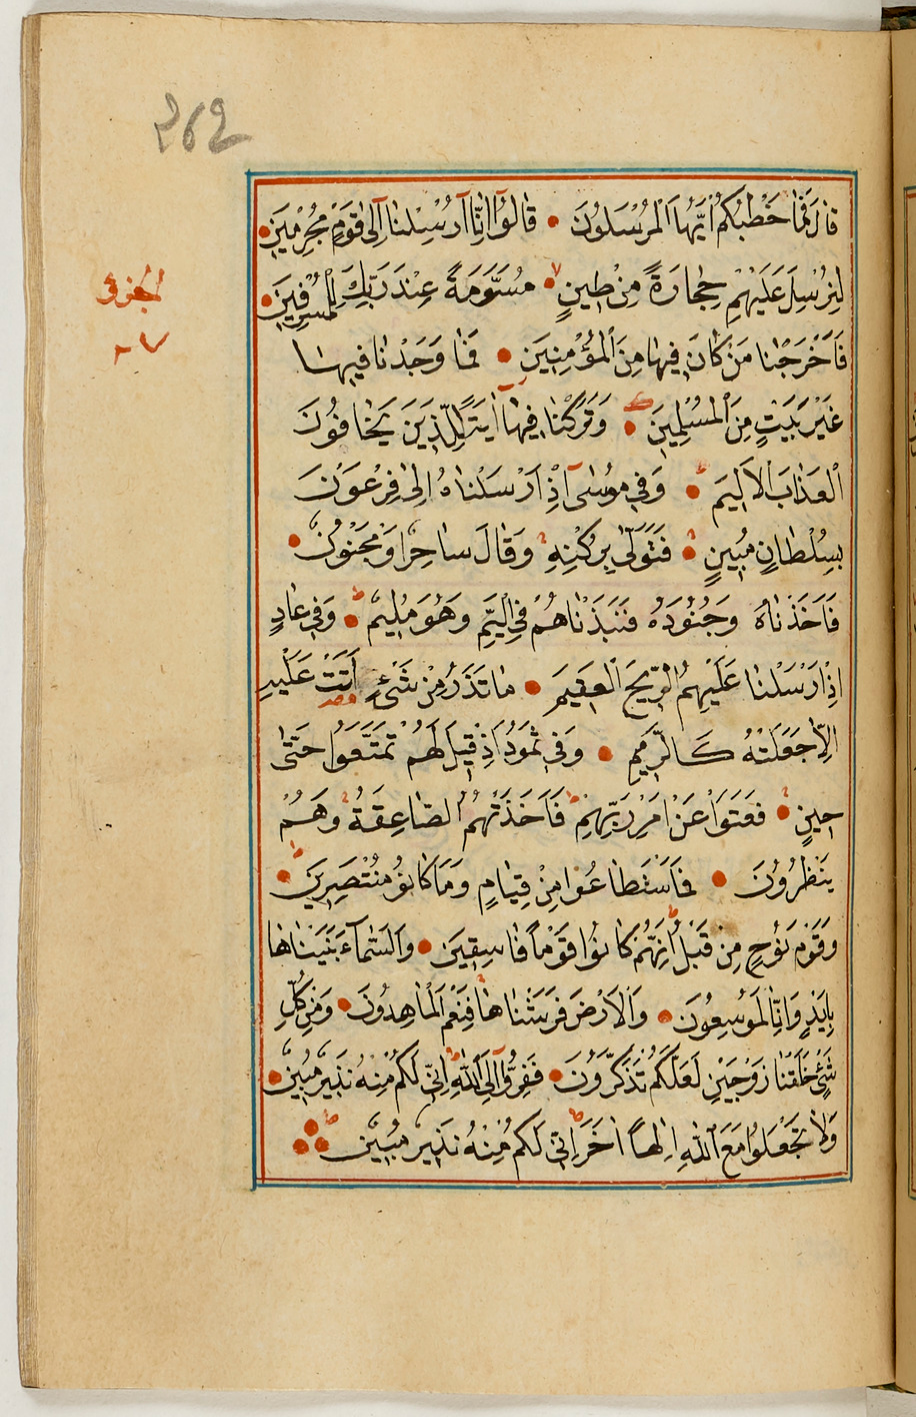 262
الجزؤ
٢٧
قَالَ فَمَا خَطْبُكُمْ اَيُّهَا الْمُرْسَلُونَ قَالُوٓا اِنَّٓا اُرْسِلْنَٓا اِلٰى قَوْمٍ مُجْرِمِينَ
لِنُرْسِلَ عَلَيْهِمْ حِجَارَةً مِنْ طِينٍ مُسَوَّمَةً عِنْدَ رَبِّكَ لِلْمُسْرِفِينَ
فَاَخْرَجْنَا مَنْ كَانَ فِيهَا مِنَ الْمُؤْمِنِينَ فَمَا وَجَدْنَا فِيهَا
غَيْرَ بَيْتٍ مِنَ الْمُسْلِمِينَ وَتَرَكْنَا فِيهَٓا اٰيَةً لِلَّذِينَ يَخَافُونَ
الْعَذَابَ الْاَلِيمَ وَفِي مُوسٰٓى اِذْ اَرْسَلْنَاهُ اِلٰى فِرْعَوْنَ
بِسُلْطَانٍ مُبِينٍ فَتَوَلّٰى بِرُكْنِهِ وَقَالَ سَاحِرٌ اَوْ مَجْنُونٌ
فَاَخَذْنَاهُ وَجُنُودَهُ فَنَبَذْنَاهُمْ فِي الْيَمِّ وَهُوَ مُلِيمٌ وَفِي عَادٍ
اِذْ اَرْسَلْنَا عَلَيْهِمُ الرِّيحَ الْعَقِيمَ مَا تَذَرُ مِنْ شَيْءٍ اَتَتْ عَلَيْهِ
اِلَّا جَعَلَتْهُ كَالرَّمِيمِ وَفِي ثَمُودَ اِذْ قِيلَ لَهُمْ تَمَتَّعُوا حَتّٰى
حِينٍ فَعَتَوْا عَنْ اَمْرِ رَبِّهِمْ فَاَخَذَتْهُمُ الصَّاعِقَةُ وَهُمْ
يَنْظُرُونَ فَمَا اسْتَطَاعُوا مِنْ قِيَامٍ وَمَا كَانُوا مُنْتَصِرِينَ
وَقَوْمَ نُوحٍ مِنْ قَبْلُ اِنَّهُمْ كَانُوا قَوْمًا فَاسِقِينَ وَالسَّمَٓاءَ بَنَيْنَاهَا
بِاَيْدٍ وَاِنَّا لَمُوسِعُونَ وَالْاَرْضَ فَرَشْنَاهَا فَنِعْمَ الْمَاهِدُونَ وَمِنْ كُلِّ
شَيْءٍ خَلَقْنَا زَوْجَيْنِ لَعَلَّكُمْ تَذَكَّرُونَ فَفِرُّوٓا اِلَى اللّٰهِ اِنِّي لَكُمْ مِنْهُ نَذِيرٌ مُبِينٌ
وَلَا تَجْعَلُوا مَعَ اللّٰهِ اِلٰهًا اٰخَرَ اِنِّي لَكُمْ مِنْهُ نَذِيرٌ مُبِينٌ